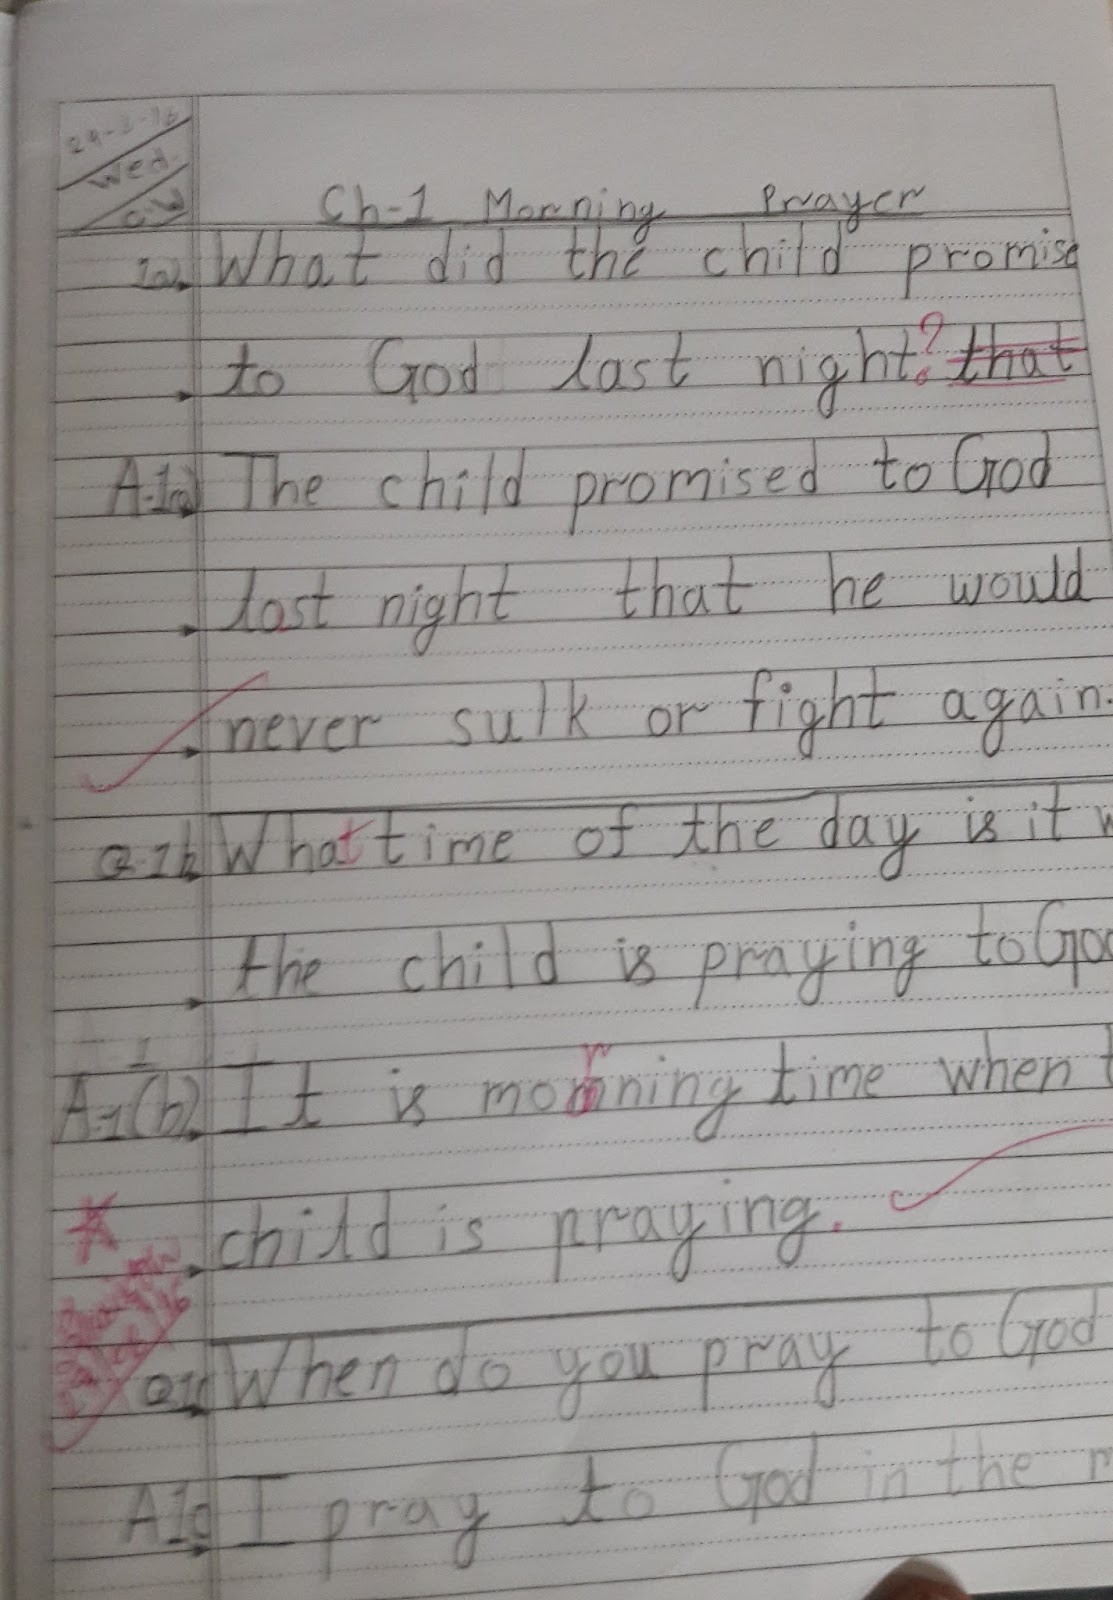 Wed.
C.W
Ch-1 Morning Prayer
1a. What did the child promise
to God last night? that
A.1a) The child promised to God
last night that he would
never sulk or fight again.
Q.1b What time of the day is it
the child is praying to God
A-1(b). It is morning time when
child is praying.
Q1c When do you pray to God
A1c I pray to God in the